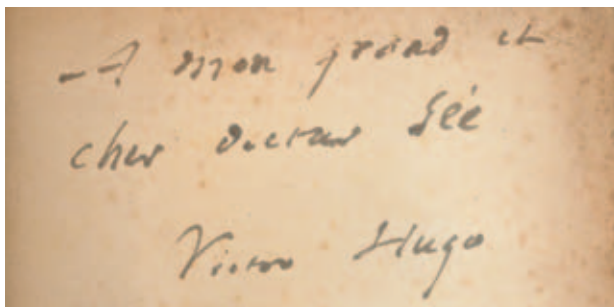 A mon grand et
cher docteur Sée
Victor Hugo